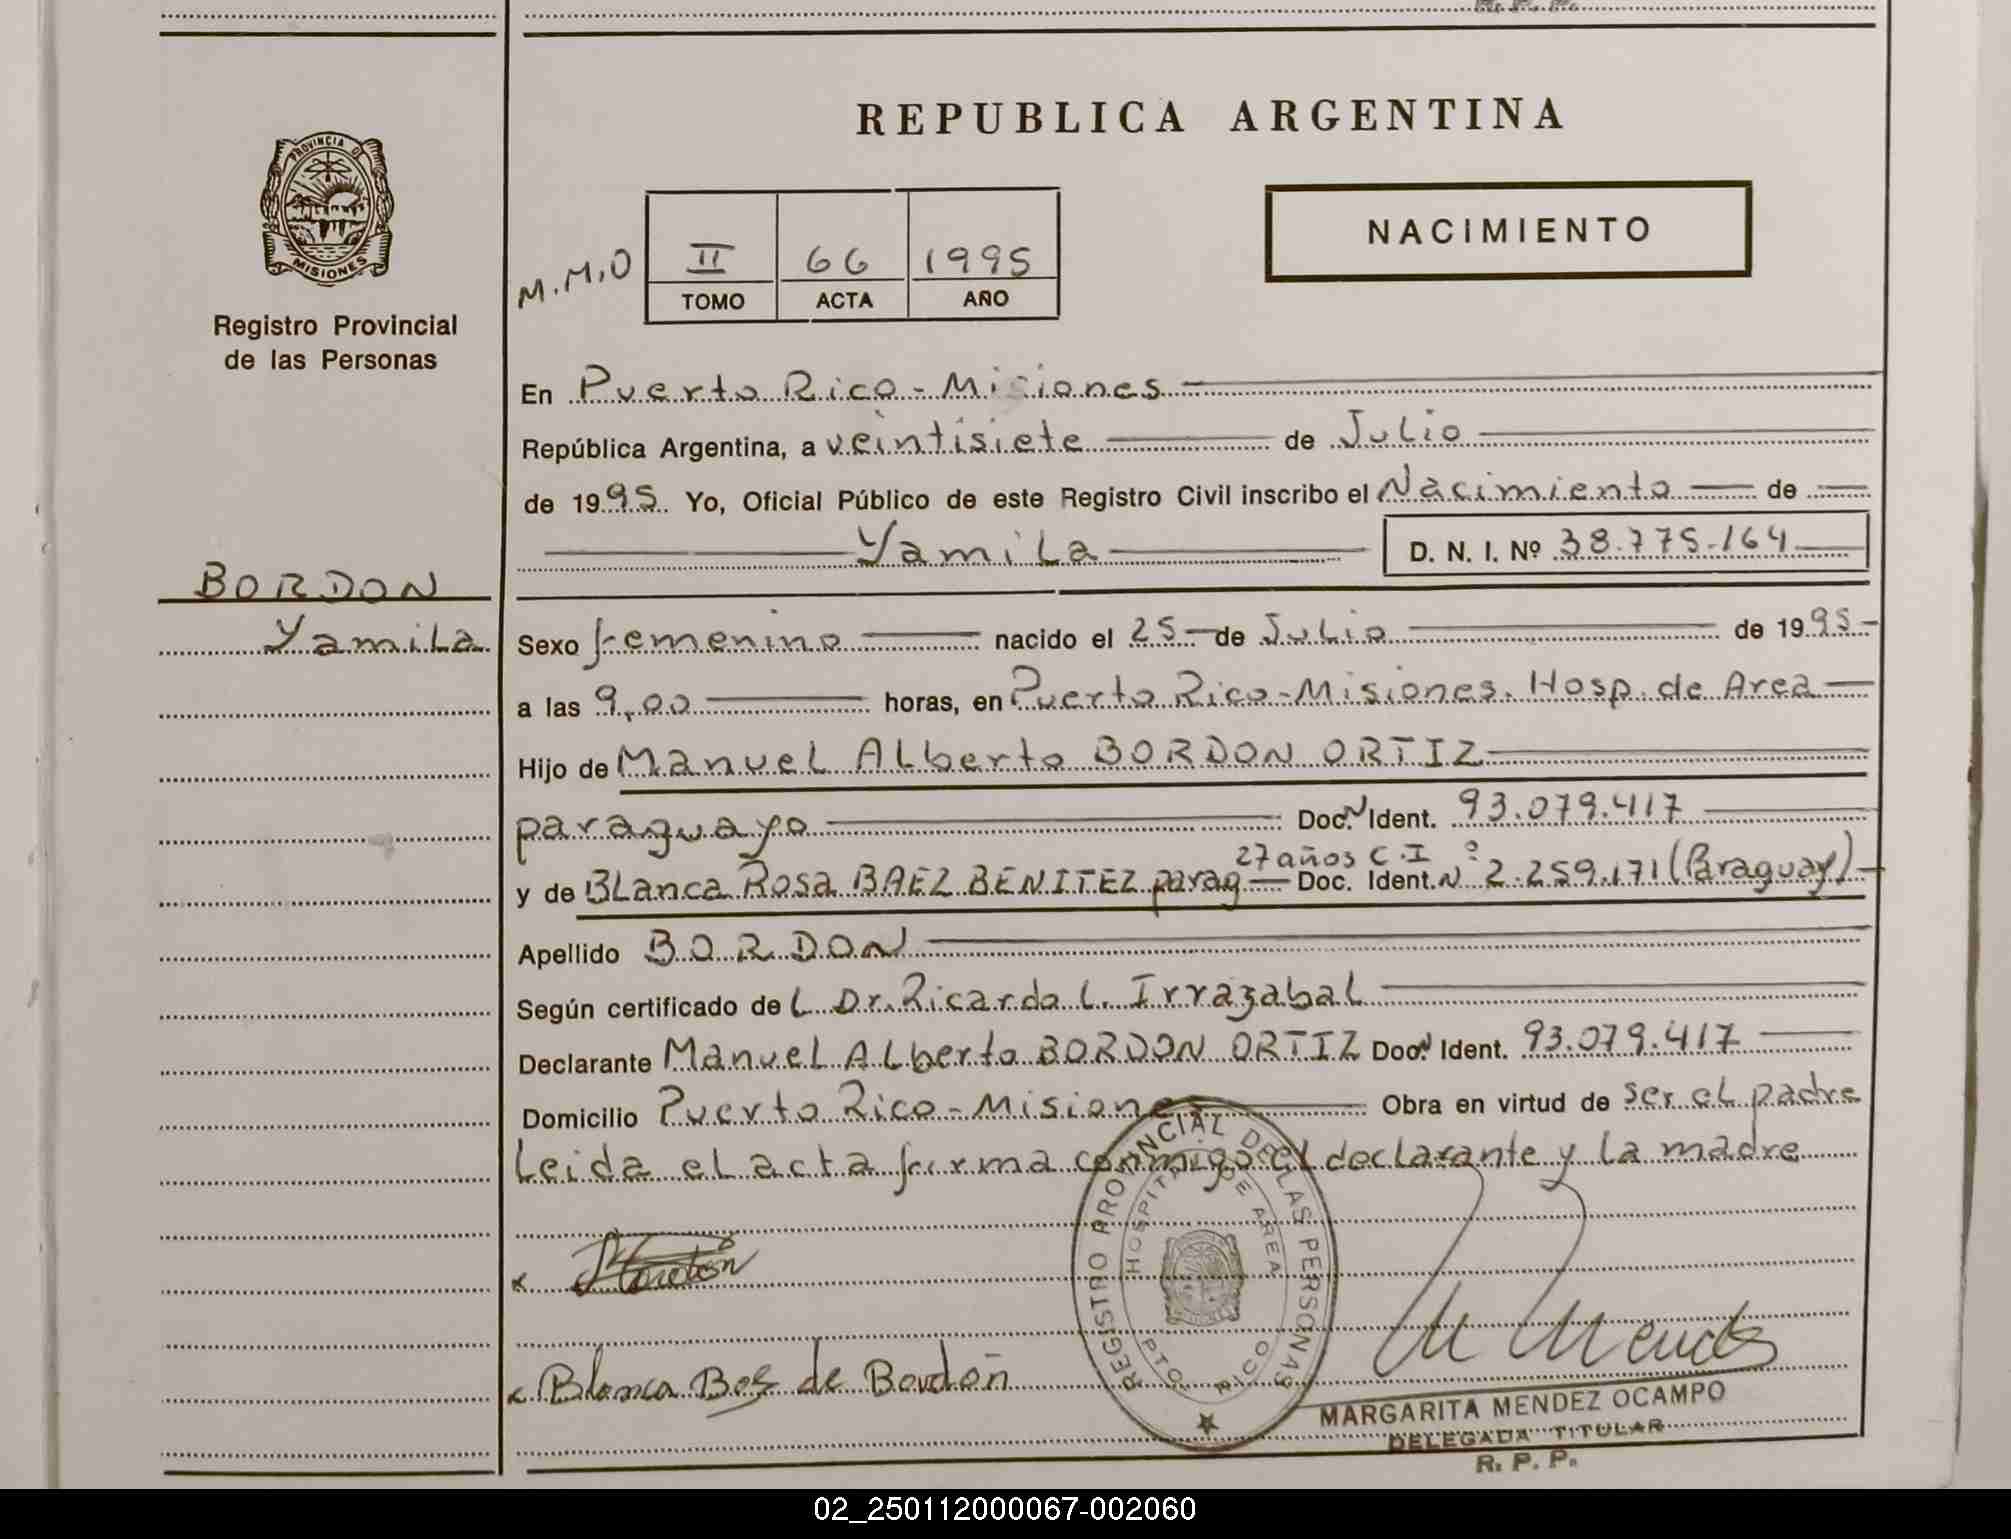 REPUBLICA ARGENTINA
PROVINCIA DE
MISIONES
Registro Provincial
de las Personas
M.M.O
II 66 1995
TOMO ACTA AÑO
NACIMIENTO
En Puerto Rico - Misiones
República Argentina, a veintisiete de Julio
de 1995 Yo, Oficial Público de este Registro Civil inscribo el Nacimiento de
Yamila D. N. I. Nº 38.775.164
BORDON
Yamila
Sexo femenino nacido el 25 de Julio de 1995
a las 9,00 horas, en Puerto Rico - Misiones. Hosp. de Area
Hijo de Manuel Alberto BORDON ORTIZ
paraguayo Doc. N Ident. 93.079.417
27 años C.I
y de Blanca Rosa BAEZ BENITEZ parag Doc. Ident. Nº 2.259.171 (Paraguay)
Apellido BORDON
Según certificado del Dr. Ricardo L. Irrazabal
Declarante Manuel Alberto BORDON ORTIZ Doc. N Ident. 93.079.417
Domicilio Puerto Rico - Misiones Obra en virtud de ser el padre
Leida el acta firma conmigo el declarante y la madre
REGISTRO PROVINCIAL DE LAS PERSONAS
HOSPITAL DE AREA
PTO. RICO
x Bordón
x Blanca Bes de Bordón
M Mendez
MARGARITA MENDEZ OCAMPO
DELEGADA TITULAR
R. P. P.
02_250112000067-002060